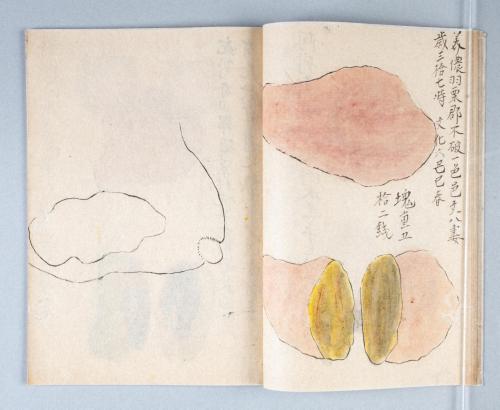 美濃羽栗郡不破一色邑
八妻
歳三拾七時 文化六己巳春
塊重五
拾二銭